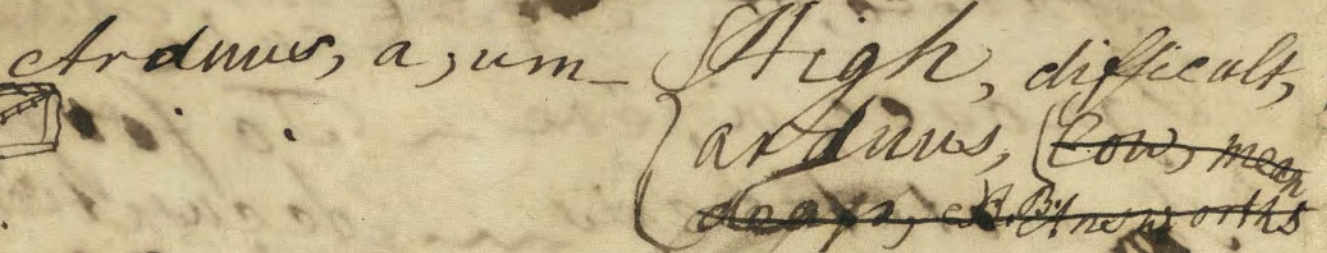 Arduus, a, um_ High, difficult,
arduus, Low, mean
deep, N.B. Ainsworths